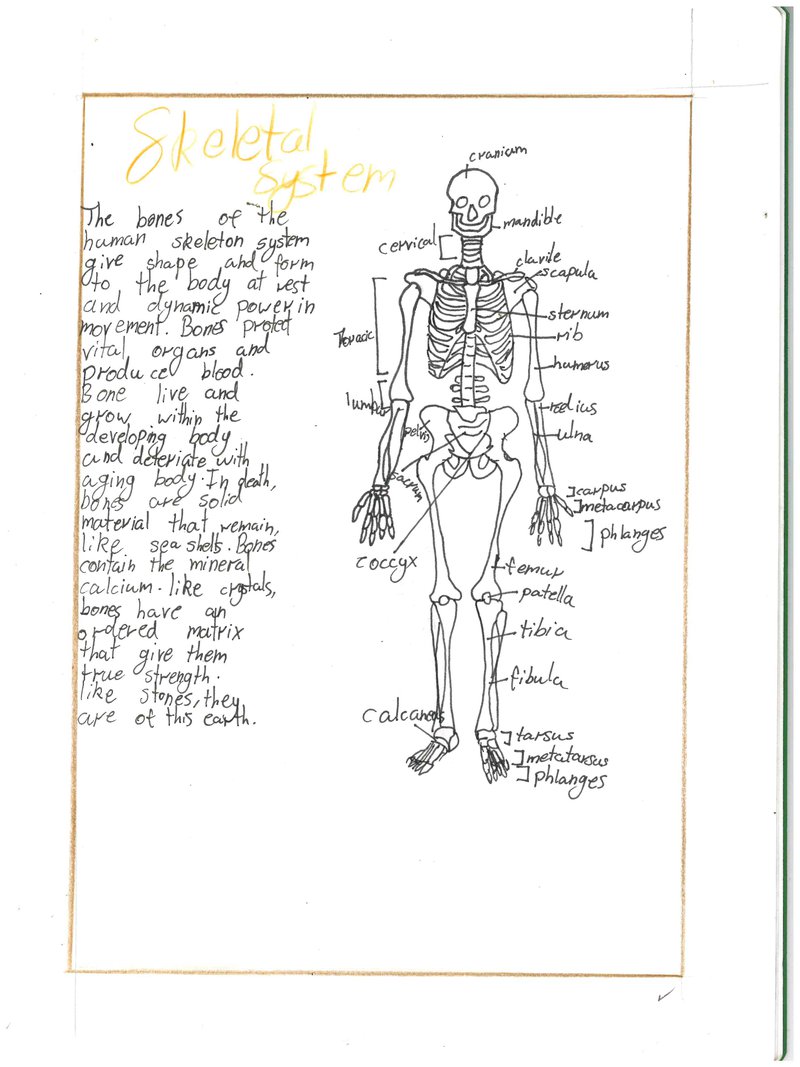 Skeletal
System
The bones of the
human skeleton system
give shape and form
to the body at rest
and dynamic power in
movement. Bones protect
vital organs and
produce blood.
Bone live and
grow within the
developing body
and deteriate with
aging body. In death,
bones are solid
material that remain,
like sea shells. Bones
contain the mineral
calcium. like crystals,
bones have an
ordered matrix
that give them
true strength.
like stones, they
are of this earth.
cranium
mandible
cervical
clavile
scapula
Thoracic
sternum
rib
humerus
lumpar
radius
ulna
pelvis
sacrum
carpus
metacarpus
phlanges
coccyx
femur
patella
tibia
fibula
calcaneus
tarsus
metatarsus
phlanges